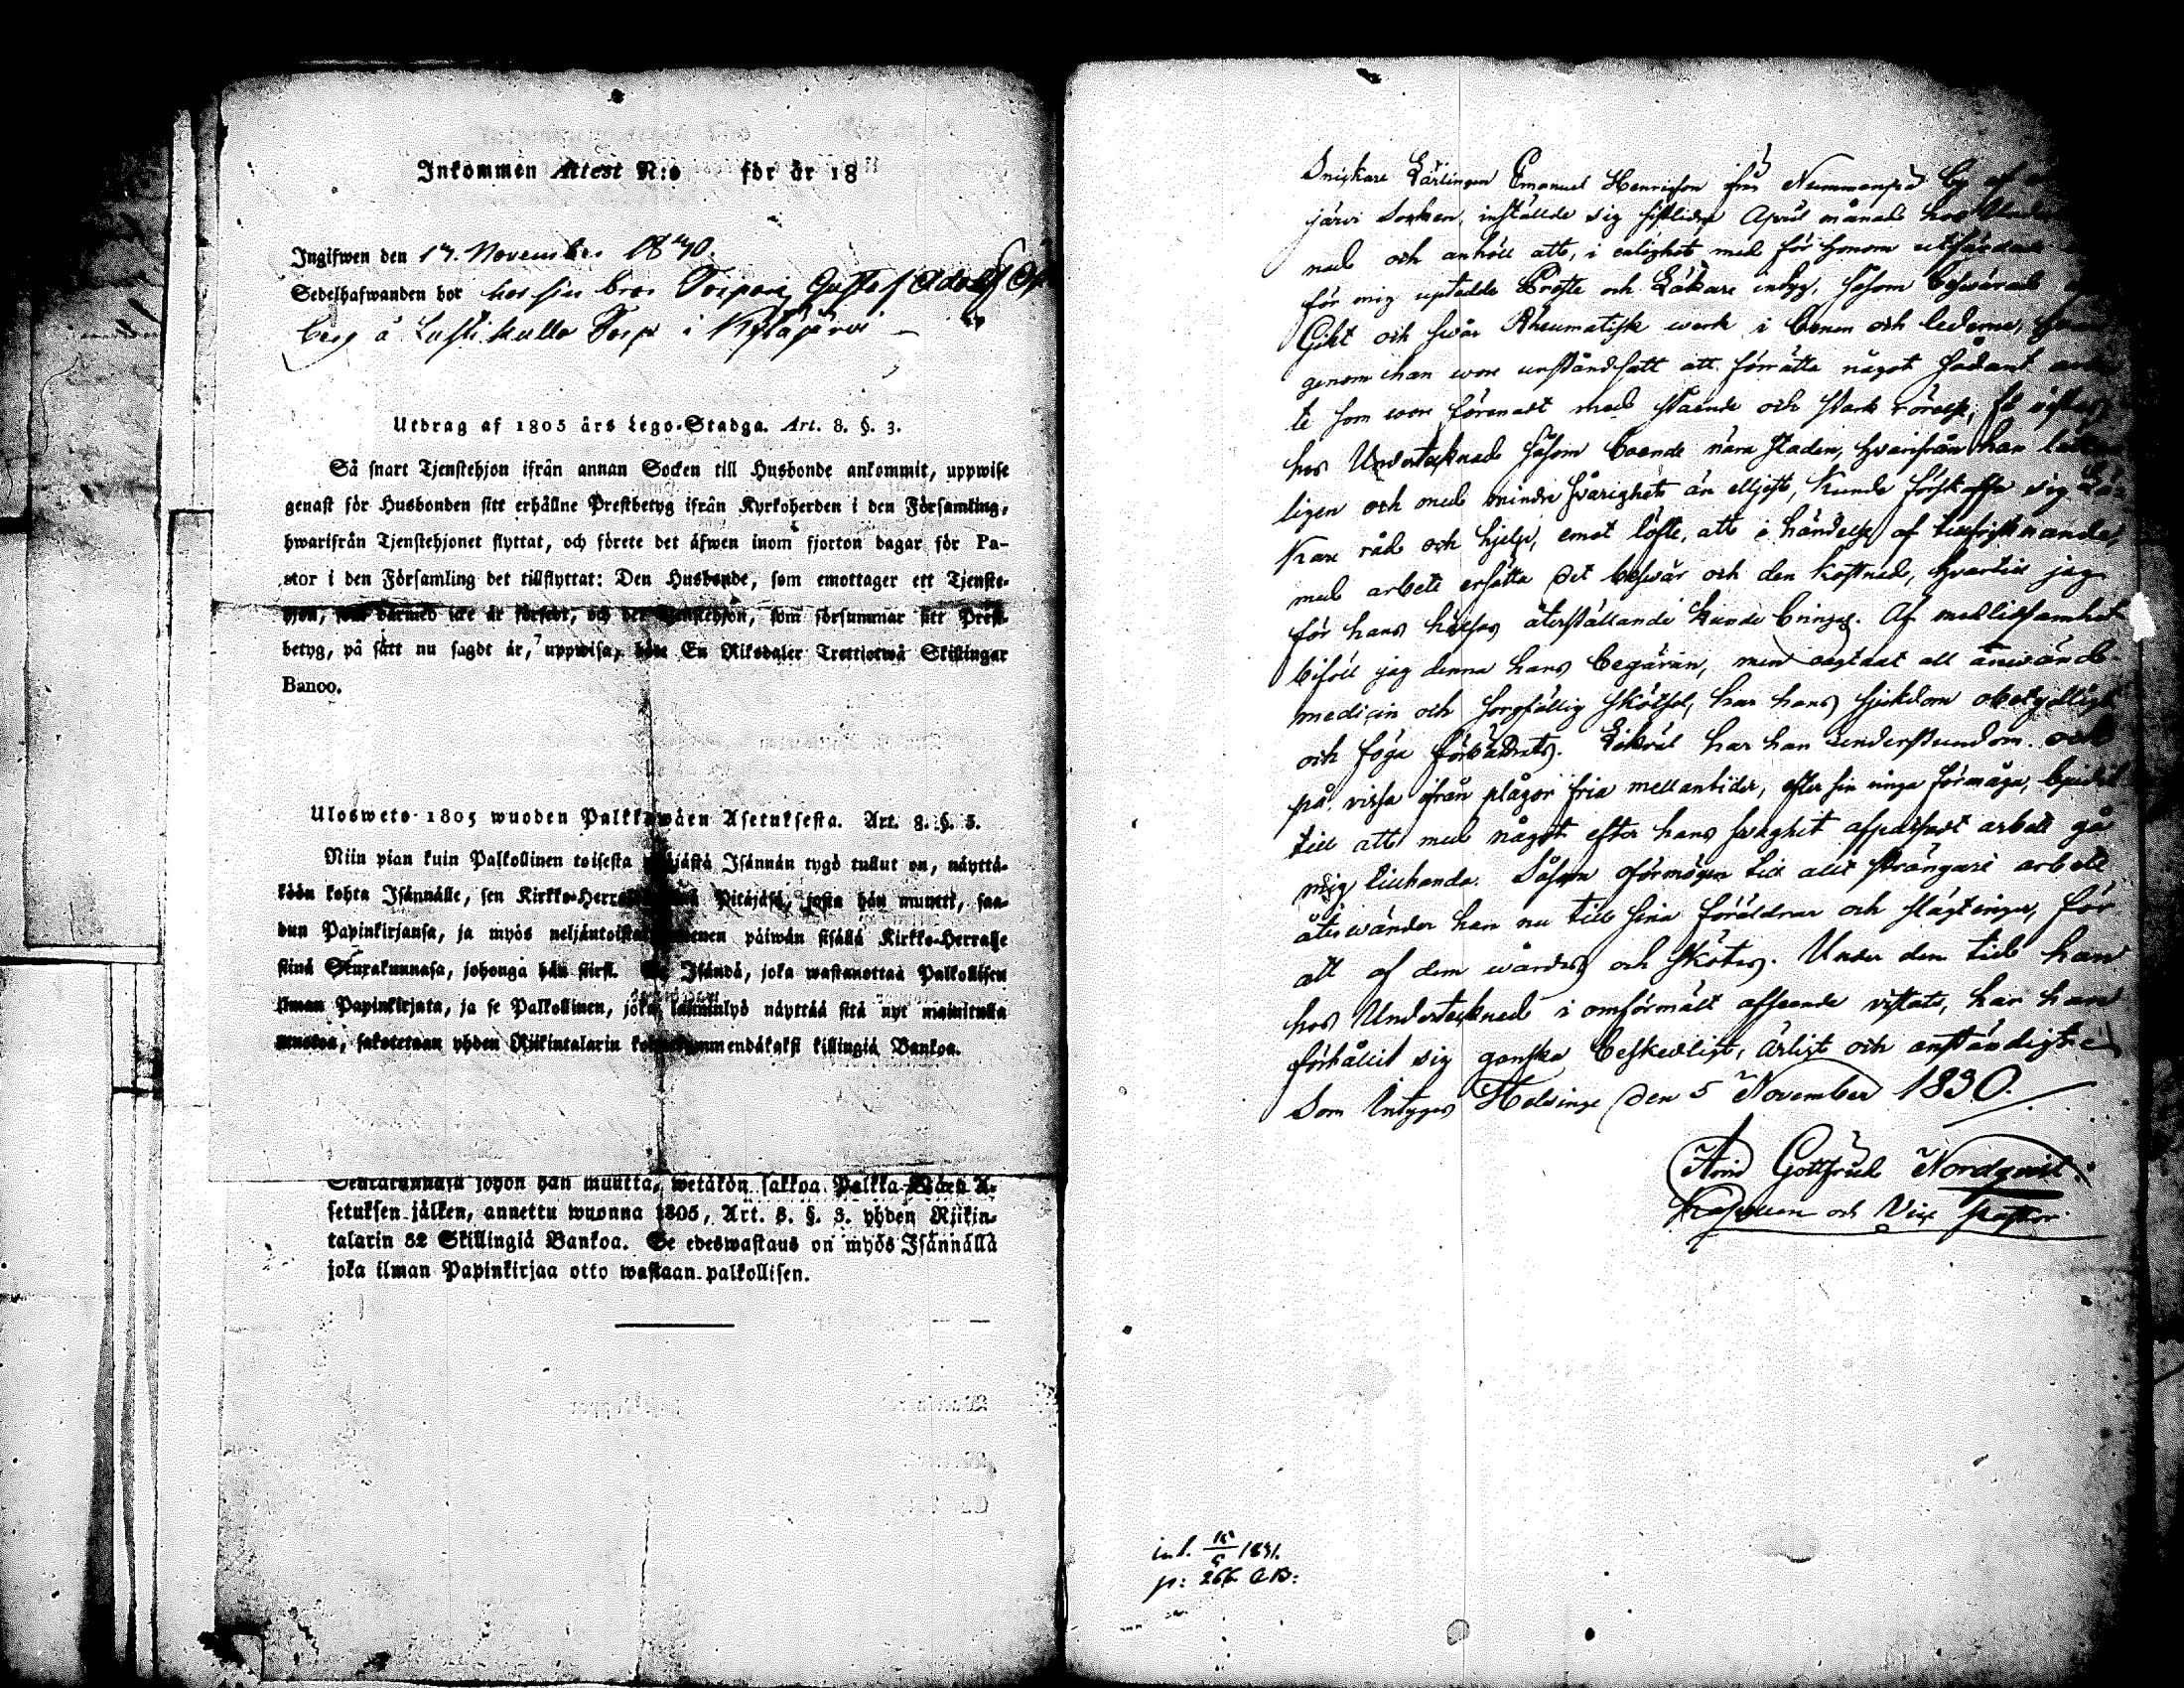 Inkommen Attest N:o för år 18
Ingifwen den 17. November 1840.
Sedelhafwanden bor hos sin bror Torparen Gustaf Adolf
berg å Torp i
Utdrag af 1805 års Lego-Stadga. Art. 8. §. 3.
Så snart Tjenstehjon ifrån annan Socken till Husbonde ankommit, uppwise
genast för Husbonden sitt erhållne Prestbetyg ifrån Kyrkoherden i den Församling,
hwarifrån Tjenstehjonet flyttat, och förete det äfwen inom fjorton dagar för Pa-
stor i den Församling det tillflyttat: Den Husbonde, som emottager ett Tjenste-
hjon, som dermed icke är försedt, och det Tjenstehjon, som försummar sitt Prest-
betyg, på sätt nu sagdt är, uppwisa, böte En Riksdaler Trettiotwå Skillingar
Banco.
Ulosweto 1805 wuoden Palkkawäen Asetuksesta. Art. 8. §. 3.
Niin pian kuin Palkollinen toisesta Pitäjästä Isännän tygö tullut on, näyttä-
köön kohta Isännälle, sen Kirkko-Herralta siinä Pitäjäsä, josta hän muutti, saa-
dun Papinkirjansa, ja myös neljäntoistakymmenen päiwän sisällä Kirkko-Herralle
siinä Seurakunnasa, johonga hän siirsi. Se Isändä, joka wastanottaa Palkollisen
ilman Papinkirjata, ja se Palkollinen, joka laiminlyö näyttää sitä nyt mainitulla
muotoa, sakotetaan yhden Riikintalarin kolmekymmendäkaksi killingiä Bankoa.
Seurakunnasa johon hän muutta, wetäkön sakkoa Palkka-Wäen A-
setuksen jälken, annettu wuonna 1805, Art. 8. §. 3. yhden Riikin-
talarin 32 Skillingiä Bankoa. Se edeswastaus on myös Isännällä
joka ilman Papinkirjaa otto wastaan palkollisen.
Snickare Lärlingen Emanuel Henricson från Nummenpää By af
järvi Socken, inställde sig sistlidne April månad hos Under
nad och anhöll att, i enlighet med för honom utfärdade
för mig uptedde Preste och Läkare intyg, såsom beswärad
Gikt och swår Rheumatisk werk i benen och lederna,
genom han wore urståndsatt att förrätta något sådant
te som wore förenadt med stående och stark rörelse, få wistas
hos Undertecknad såsom boende nära staden, hvarifrån han
ligen och med mindre svårighet än elljest, kunde förskaffa sig Lä-
kare råd och hjelp, emot löfte, att i händelse af tillfrisknande,
med arbete ersätta det beswär och den kostnad, hvartill jag
för hans helsas återställande kunde bringas. Af medlidsamhet
biföll jag denna hans begäran, men oagtadt all använd
medicin och sorgfällig skötsel, har hans sjukdom obetydligt
och föga förbättrats. Likväl har han understundom och
på vissa ifrån plågor fria mellantider, efter sin ringa förmåga, bjudit
till att med något efter hans svaghet afpassadt arbete gå
mig tillhanda. Såsom oförmögen till allt strängare arbete
återwänder han nu till sina föräldrar och slägtingar, för
att af dem wårdas och skötas. Under den tid han
hos Undertecknad i omförmält afseende vistats, har han
förhållit sig ganska beskedligt, ärligt och anständigt
Som intygas Helsinge den 5 November 1830.
Arvid Gottfrid Nordqvist.
Kapellan och Vice Pastor.
inl. 15/5 1831.
p: 266 CB: